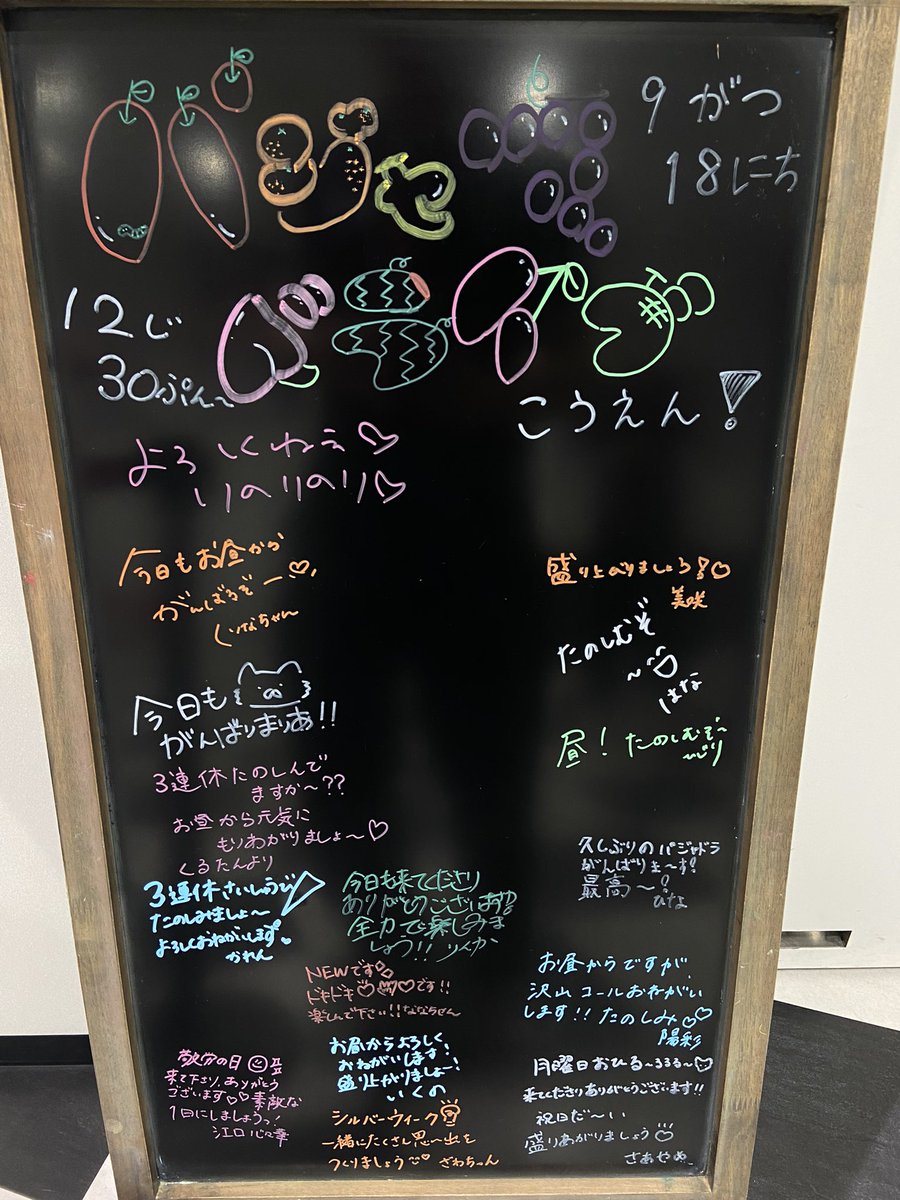 パジャマ
9がつ
18にち
12じ
30ぷん〜
ドライブ
こうえん!
よろしくねぇ♡
りのりのり♡
今日もお昼から
がんばるぞー♡
くれなちゃん
盛り上がりましょう!♡
美咲
たのしむぞ
〜
はな
今日も
がんばりまりあ!!
昼!たのしむぞ〜
3連休たのしんで
ますか〜??
お昼から元気に
もりあがりましょ〜♡
くるたんより
久しぶりのパジャドラ
がんばりま〜す!
最高〜!
ひな
3連休さいしゅうび
たのしみましょ〜
よろしくおねがいします。
かれん
今日も来てくださり
ありがとうございます!!
全力で楽しみま
しょう!!
NEWです
ドキドキ♡♡♡です!!
楽しんで下さい!!ななちゃん
お昼からですが、
沢山コールおねがい
します!!たのしみ♡♡
陽彩
敬労の日
来て下さり、ありがとう
ございます♡♡素敵な
1日にしましょうっ!
江口心々華
お昼からよろしく
おねがいします!
盛り上がりましょー!
いくの
シルバーウィーク
一緒にたくさん思〜出を
つくりましょう♡
ざわちゃん
月曜日おひる〜るるる〜♡
来てくださりありがとうございます!!
祝日だ〜い
盛りあがりましょう♡
さあやぬ